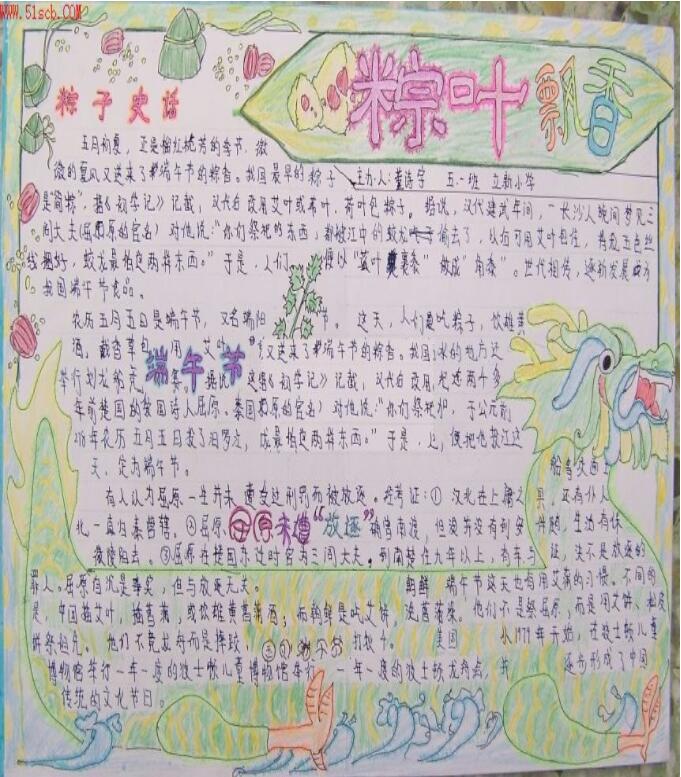 www.51scb.COM
粽叶飘香
粽子史话
主办人:董诗宇 五.一班 立新小学
五月初夏,正是榴红桃芳的季节.微
微的夏风又送来了端午节的粽香。我国最早的粽子
是"筒粽",据《初学记》记载,汉代后改用艾叶或苇叶、荷叶包粽子。据说,汉代建武年间,一长沙人晚间梦见三
闾大夫(屈原的官名)对他说:"你们祭祀的东西,都被江中的蛟龙偷去了,以后可用艾叶包住,将五色丝
线捆好,蛟龙最怕这两样东西。"于是,人们便以"菰叶裹黍"做成"角黍"。世代相传,逐渐发展成为
我国端午节食品。
农历五月五日是端午节,又名端阳节。这天,人们要吃粽子,饮雄黄
酒,戴香草包,用艾叶又送来了端午节的粽香。我国的地方还
端午节
举行划龙舟竞赛 据说 这《初学记》记载,汉代后改用 两千多
年前楚国的爱国诗人屈原、秦国 原的官名)对他说:"你们祭祀 ,于公元前
年农历五月五日投了汨罗江,成最怕这两样东西。"于是 ,便把他投江这
天,定为端午节。
有人认为屈原一生并未遭受过刑罚而被放逐。经考证:①汉北在上庸之 ,还有仆人
屈原未遭"放逐"
北一直归秦管辖。②屈原 ,但没并没有到 ,生活有保
陵阳去。③屈原在楚国东迁时官为三闾大夫。到南楚住九年以上,有车与 证,决不是放逐的
罪人。屈原自沉是事实,但与放逐无关。
朝鲜 端午节这天也有用艾蒿的习惯。不同的
是,中国插艾叶,插菖蒲,或饮雄黄菖蒲酒,而朝鲜是吃艾饼,洗菖蒲水。他们不是祭屈原,而是用艾饼、
饼祭祖先。他们不竞龙舟而是摔跤, 打秋千。 美国 从1979年开始,在波士顿儿童
博物馆举行一年一度的波士顿儿童博物馆举行 一年一度的波士顿龙舟点,并 逐步形成了中国
传统的文化节日。